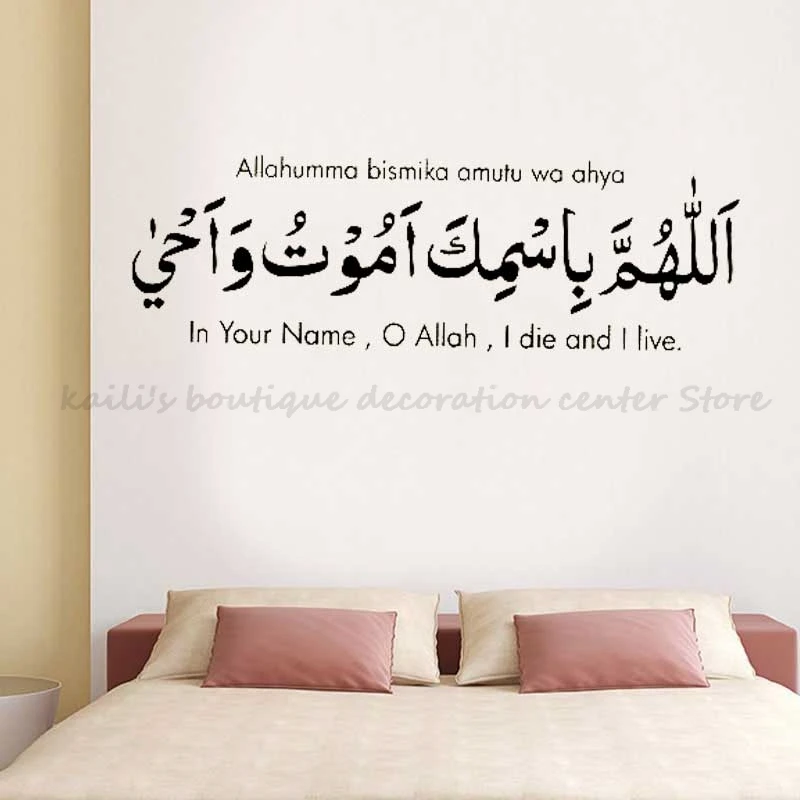 Allahumma bismika amutu wa ahya
اَللّٰهُمَّ بِاسْمِكَ اَمُوْتُ وَاَحْيٰي
In Your Name , O Allah , I die and I live.
kaili's boutique decoration center Store